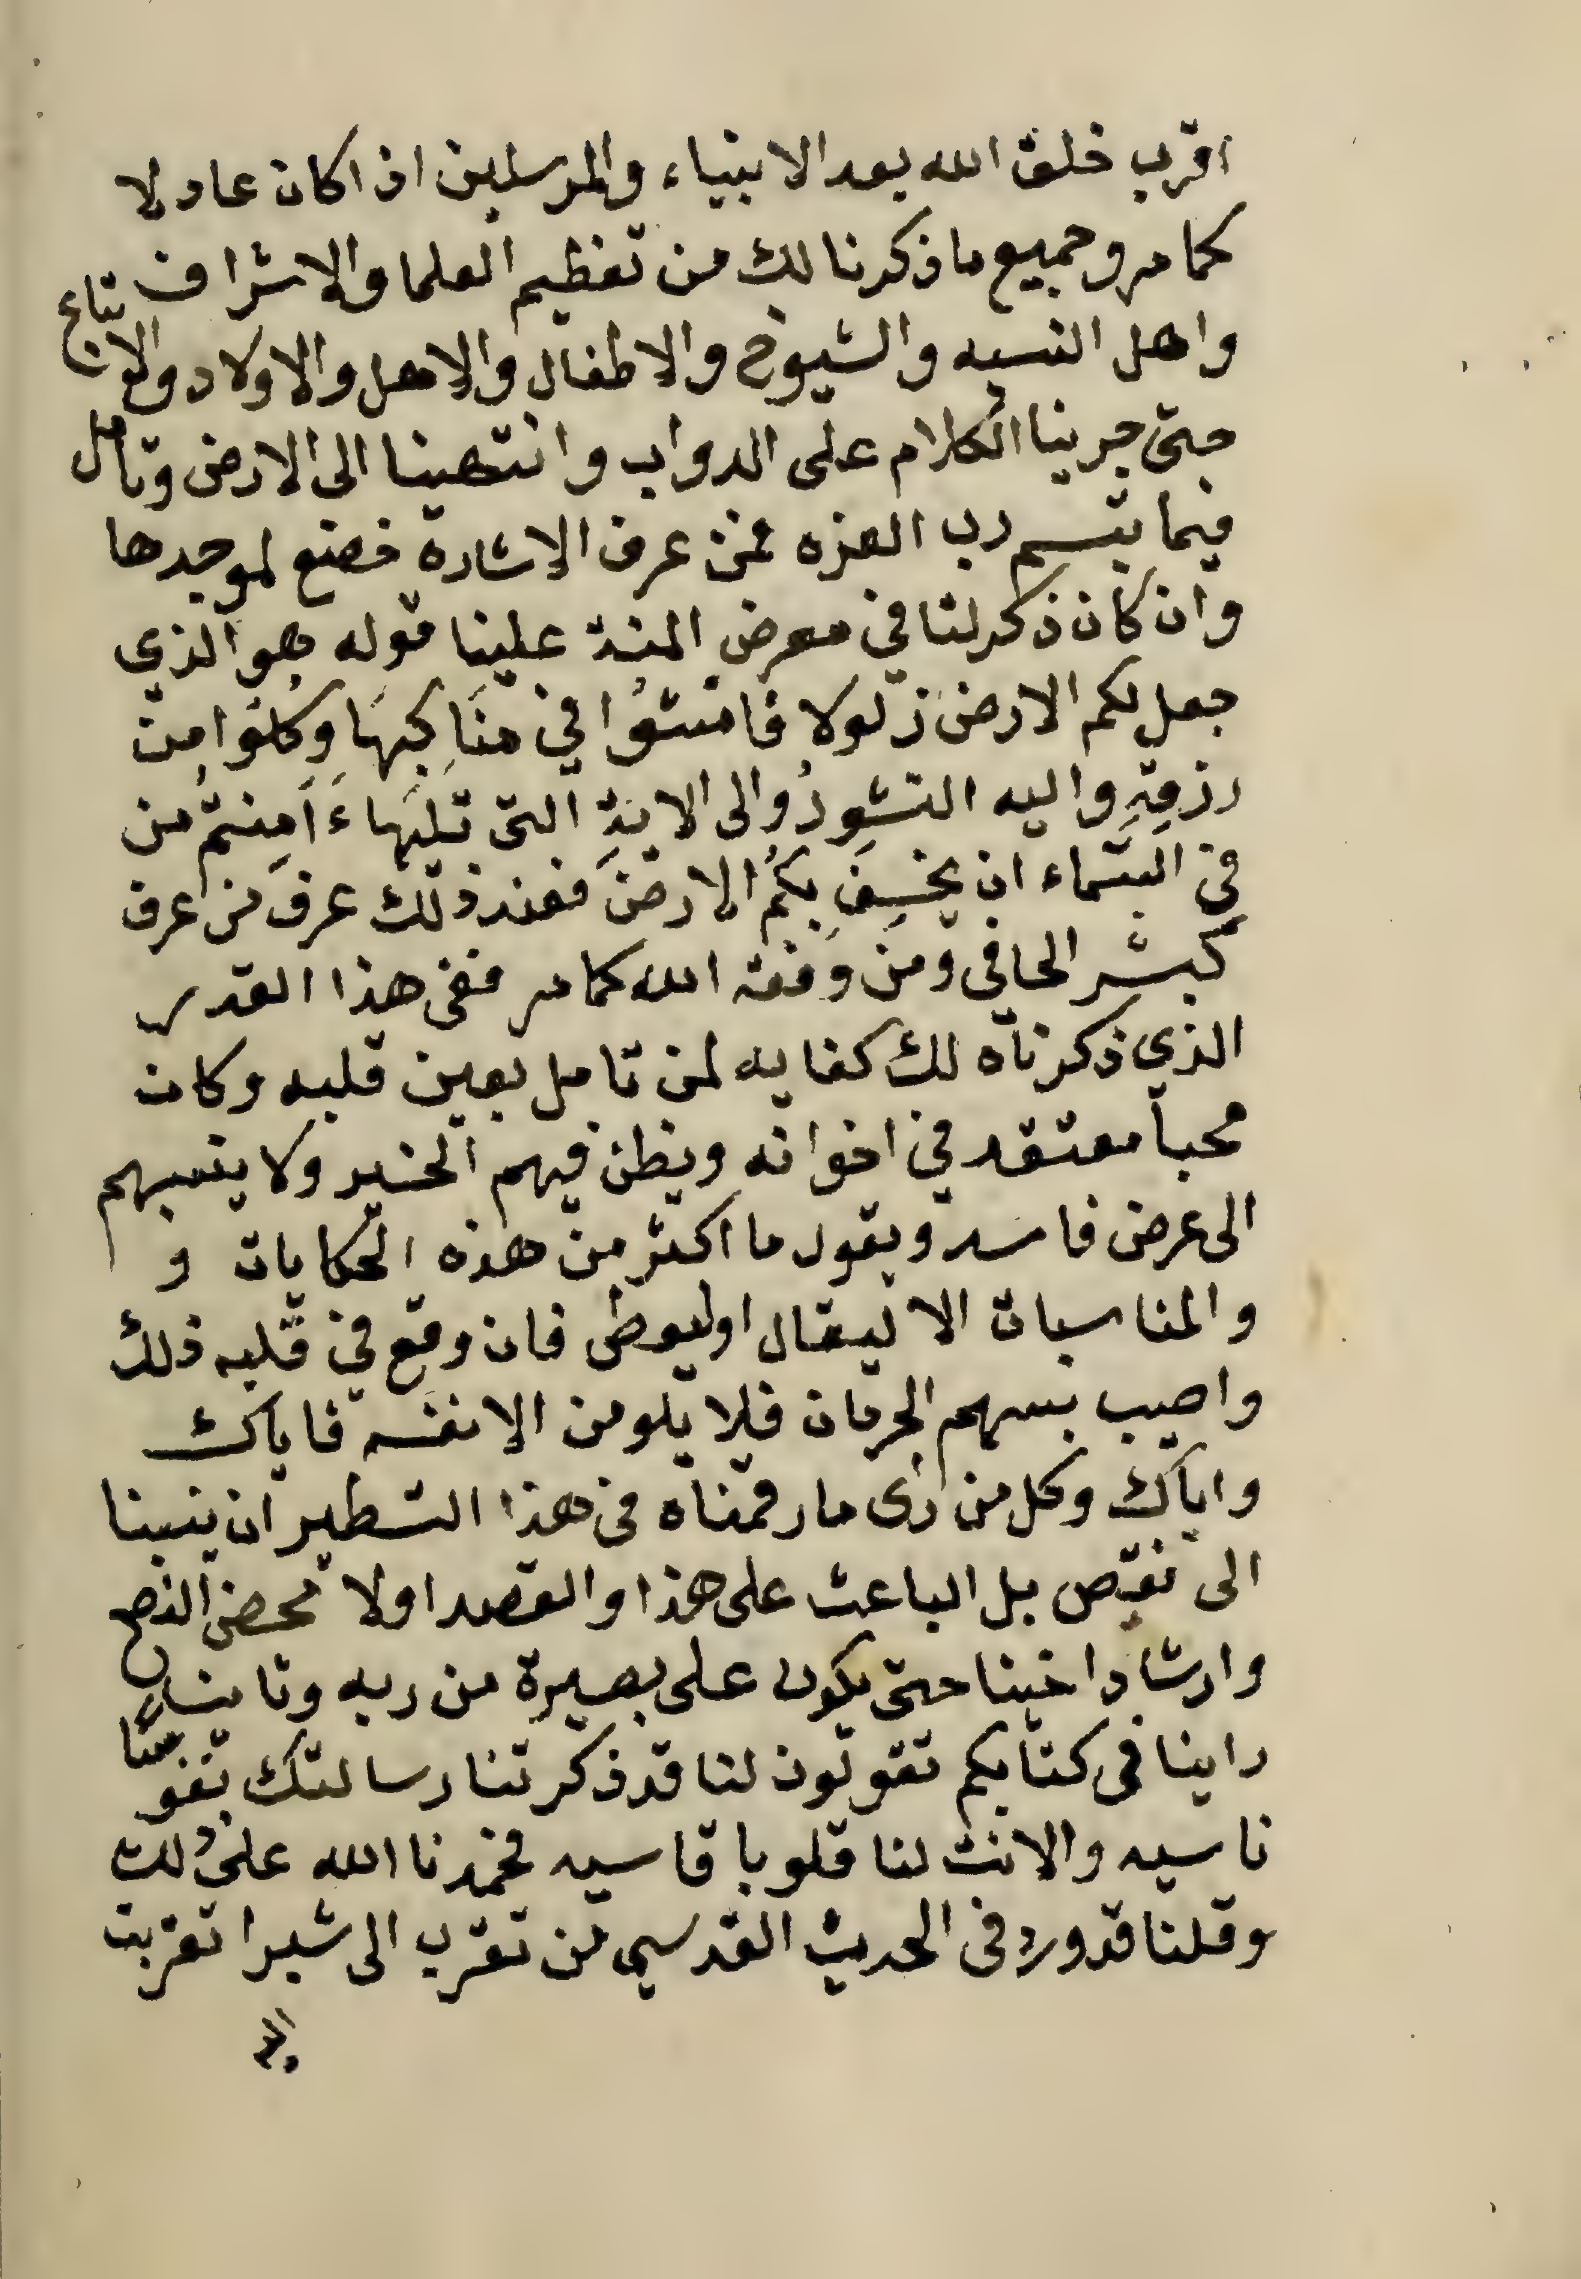 اقرب خلق الله بعد الانبياء والمرسلين اذا كان عادلا
كما مر وجميع ما ذكرنا لك من تعظيم العلما والاشراف
واهل النسبه والشيوخ والاطفال والاهل والاولاد والاتباع
حتى جرينا الكلام على الدواب وانتهينا الى الارض وتامل
فيما يقسم رب العزه فمن عرف الاشارة خضع لموجدها
وان كان ذكر لنا في معرض المنة علينا قوله هو الذي
جعل لكم الارض ذلولا فامشوا في مناكبها وكلوا من
رزقه واليه النشور والى الاية التى تليها ءامنتم من
في السماء ان يخسف بكم الارض فعند ذلك عرف من عرف
كبشر الحافى ومن وفقه الله كما مر ففى هذا القدر
الذي ذكرناه لك كفايه لمن تامل بعين قلبه وكان
محبا معتقد في اخوانه ويظن فيهم الخير ولا ينسبهم
الى عرض فاسد ويقول ما اكثر من هذه الحكايات و
والمناسبات الا ليقال او ليعطى فان وقع في قلبه ذلك
واصيب بسهم الحرمان فلا يلومن الا نفسه فاياك
واياك وكل من راى ما رقمناه فى هذا التسطير ان ينسبنا
الى نقص بل الباعث على هذا والقصد اولا محض النصح
وارشاد اخينا حتى يكون على بصيرة من ربه وثانيا
راينا فى كتابكم تقولون لنا قد ذكرتنا رسالتك نفوسًا
ناسيه والانت لنا قلوبا قاسيه فحمدنا الله على ذلك
وقلنا قد ورد فى الحديث القدسي من تقرب الى شبرا تقربت
اليه